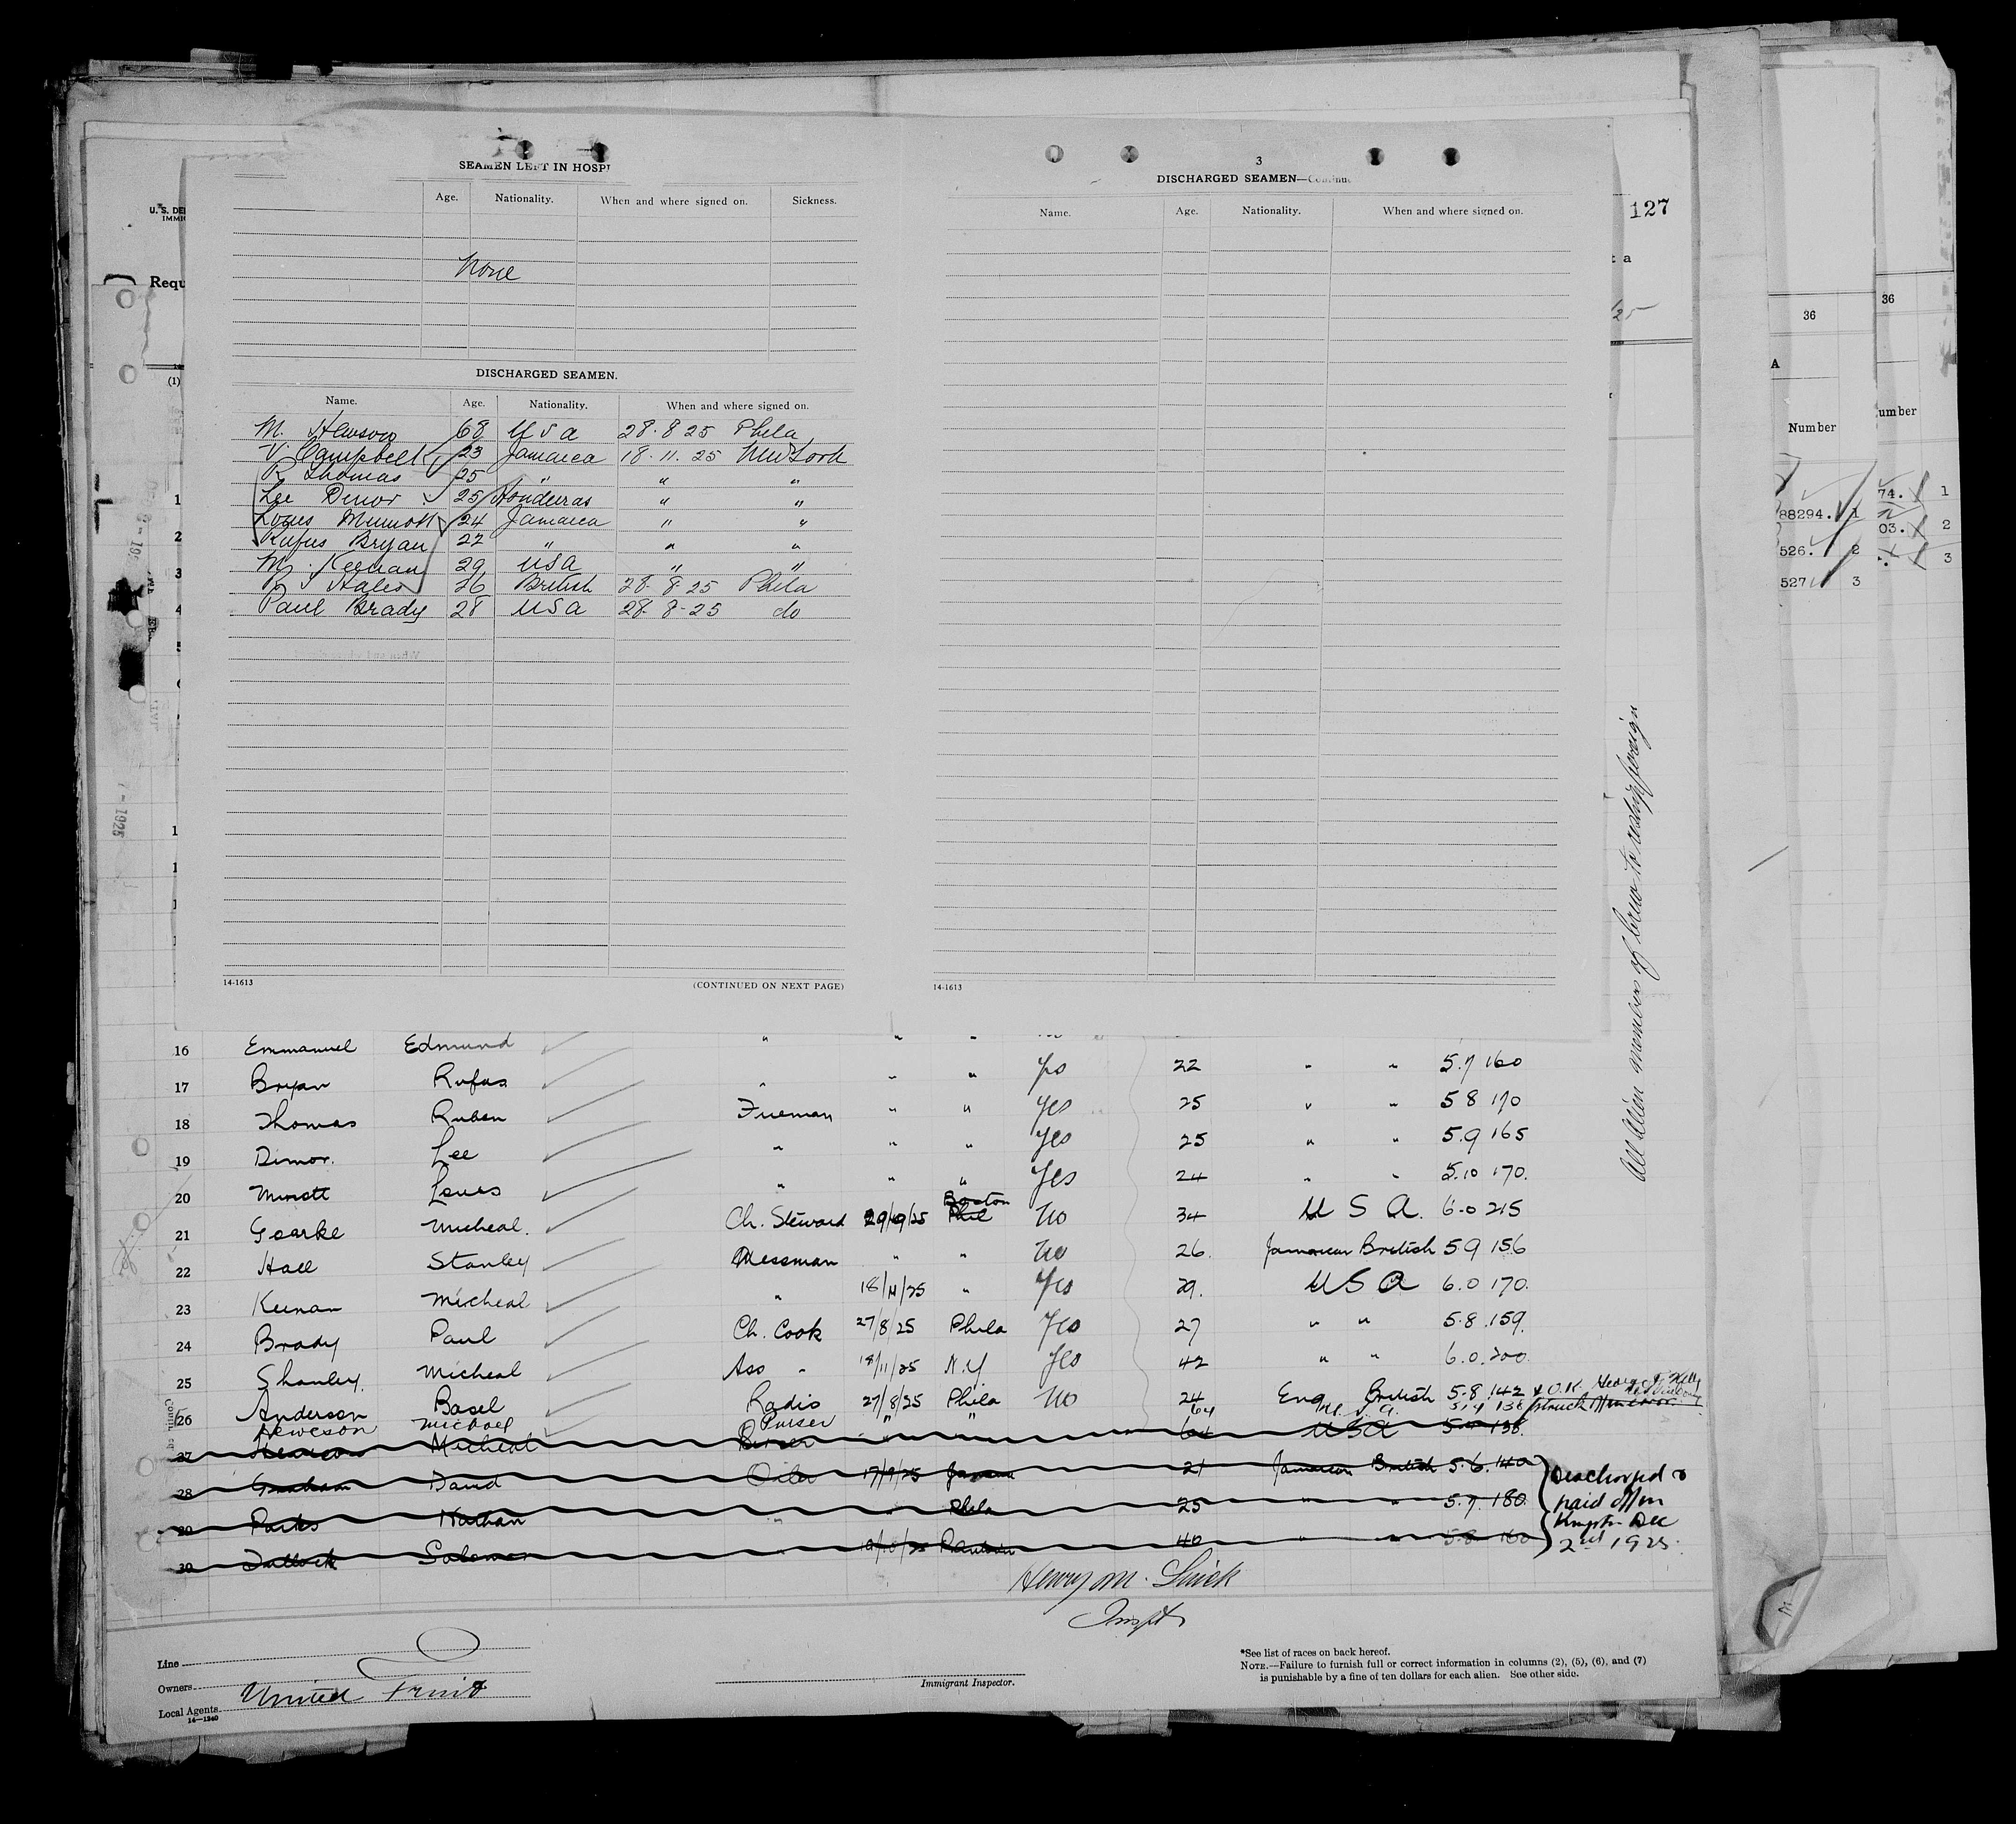 SEAMEN LEFT IN HOSPI
Age. Nationality. When and where signed on. Sickness.
None
DISCHARGED SEAMEN.
Name. Age. Nationality. When and where signed on.
M. Hewson 68 U S A 28. 8 25 Phila
V. Campbell 23 Jamaica 18. 11. 25 New York
R Thomas 25 " " "
Lee Dimor 25 Honduras " "
Louis Minnott 24 Jamaica " "
Rufus Bryan 22 " " "
M. Keenan 29 USA " "
R Hales 26 British 28. 8. 25 Phila
Paul Brady 28 USA 28. 8-25 do
14-1613 (CONTINUED ON NEXT PAGE)
3
DISCHARGED SEAMEN—Continue
Name. Age. Nationality. When and where signed on.
14-1613
U. S. DE
IMMIG
Requ
(1)
127
t a
/25
36
36
A
Number
umber
74. 1
88294. 1
03. 2
526. 2
3
527 3
1
2
3
4
- 1925
All Alien members of Crew to reship foreign
16 Emmanuel Edmund " " "
17 Bryan Rufus " " " Yes 22 " " 5.7 160
18 Thomas Ruben Fireman " " Yes 25 " " 5 8 170
19 Dimor. Lee " " " Yes 25 " " 5.9 165
20 Minott Louis " " " Yes 24 " " 5.10 170.
Boston
21 Goarke Micheal. Ch. Steward 29/9/25 Phil No 34 U S A. 6-0 215
22 Hall Stanley Messman " " No 26. Jamaican British 5 9 156
23 Keenan Micheal " 18/11/25 " Yes 29. U S A 6.0 170.
24 Brady Paul Ch. Cook 27/8/25 Phila Yes 27 " " 5.8 .159.
25 Shanley. Micheal Ass " 18/11/25 N.Y. Yes 42 " " 6.0.200.
26 Anderson Basel Radio 27/8/25 Phila No 24 Eng British 5-8.142
Heweson Michael Purser " " 64 U. S. A.
27 Micheal Purser " " 64 USA 5-7 138.
28 Graham David Oiler 17/9/25 21 Jamaican British 5.6. 140
29 Parks Nathan " " Phila 25 " " 5.7. 180.
30 Tullock Solomon " 40 " " 5.8. 160
Discharged &
paid off in
Kingston Dec
2nd 1925.
Henry M. Shick
Inspt
Line
Owners
Local Agents United Fruit
14—1240
Immigrant Inspector.
*See list of races on back hereof.
NOTE.—Failure to furnish full or correct information in columns (2), (5), (6), and (7)
is punishable by a fine of ten dollars for each alien. See other side.